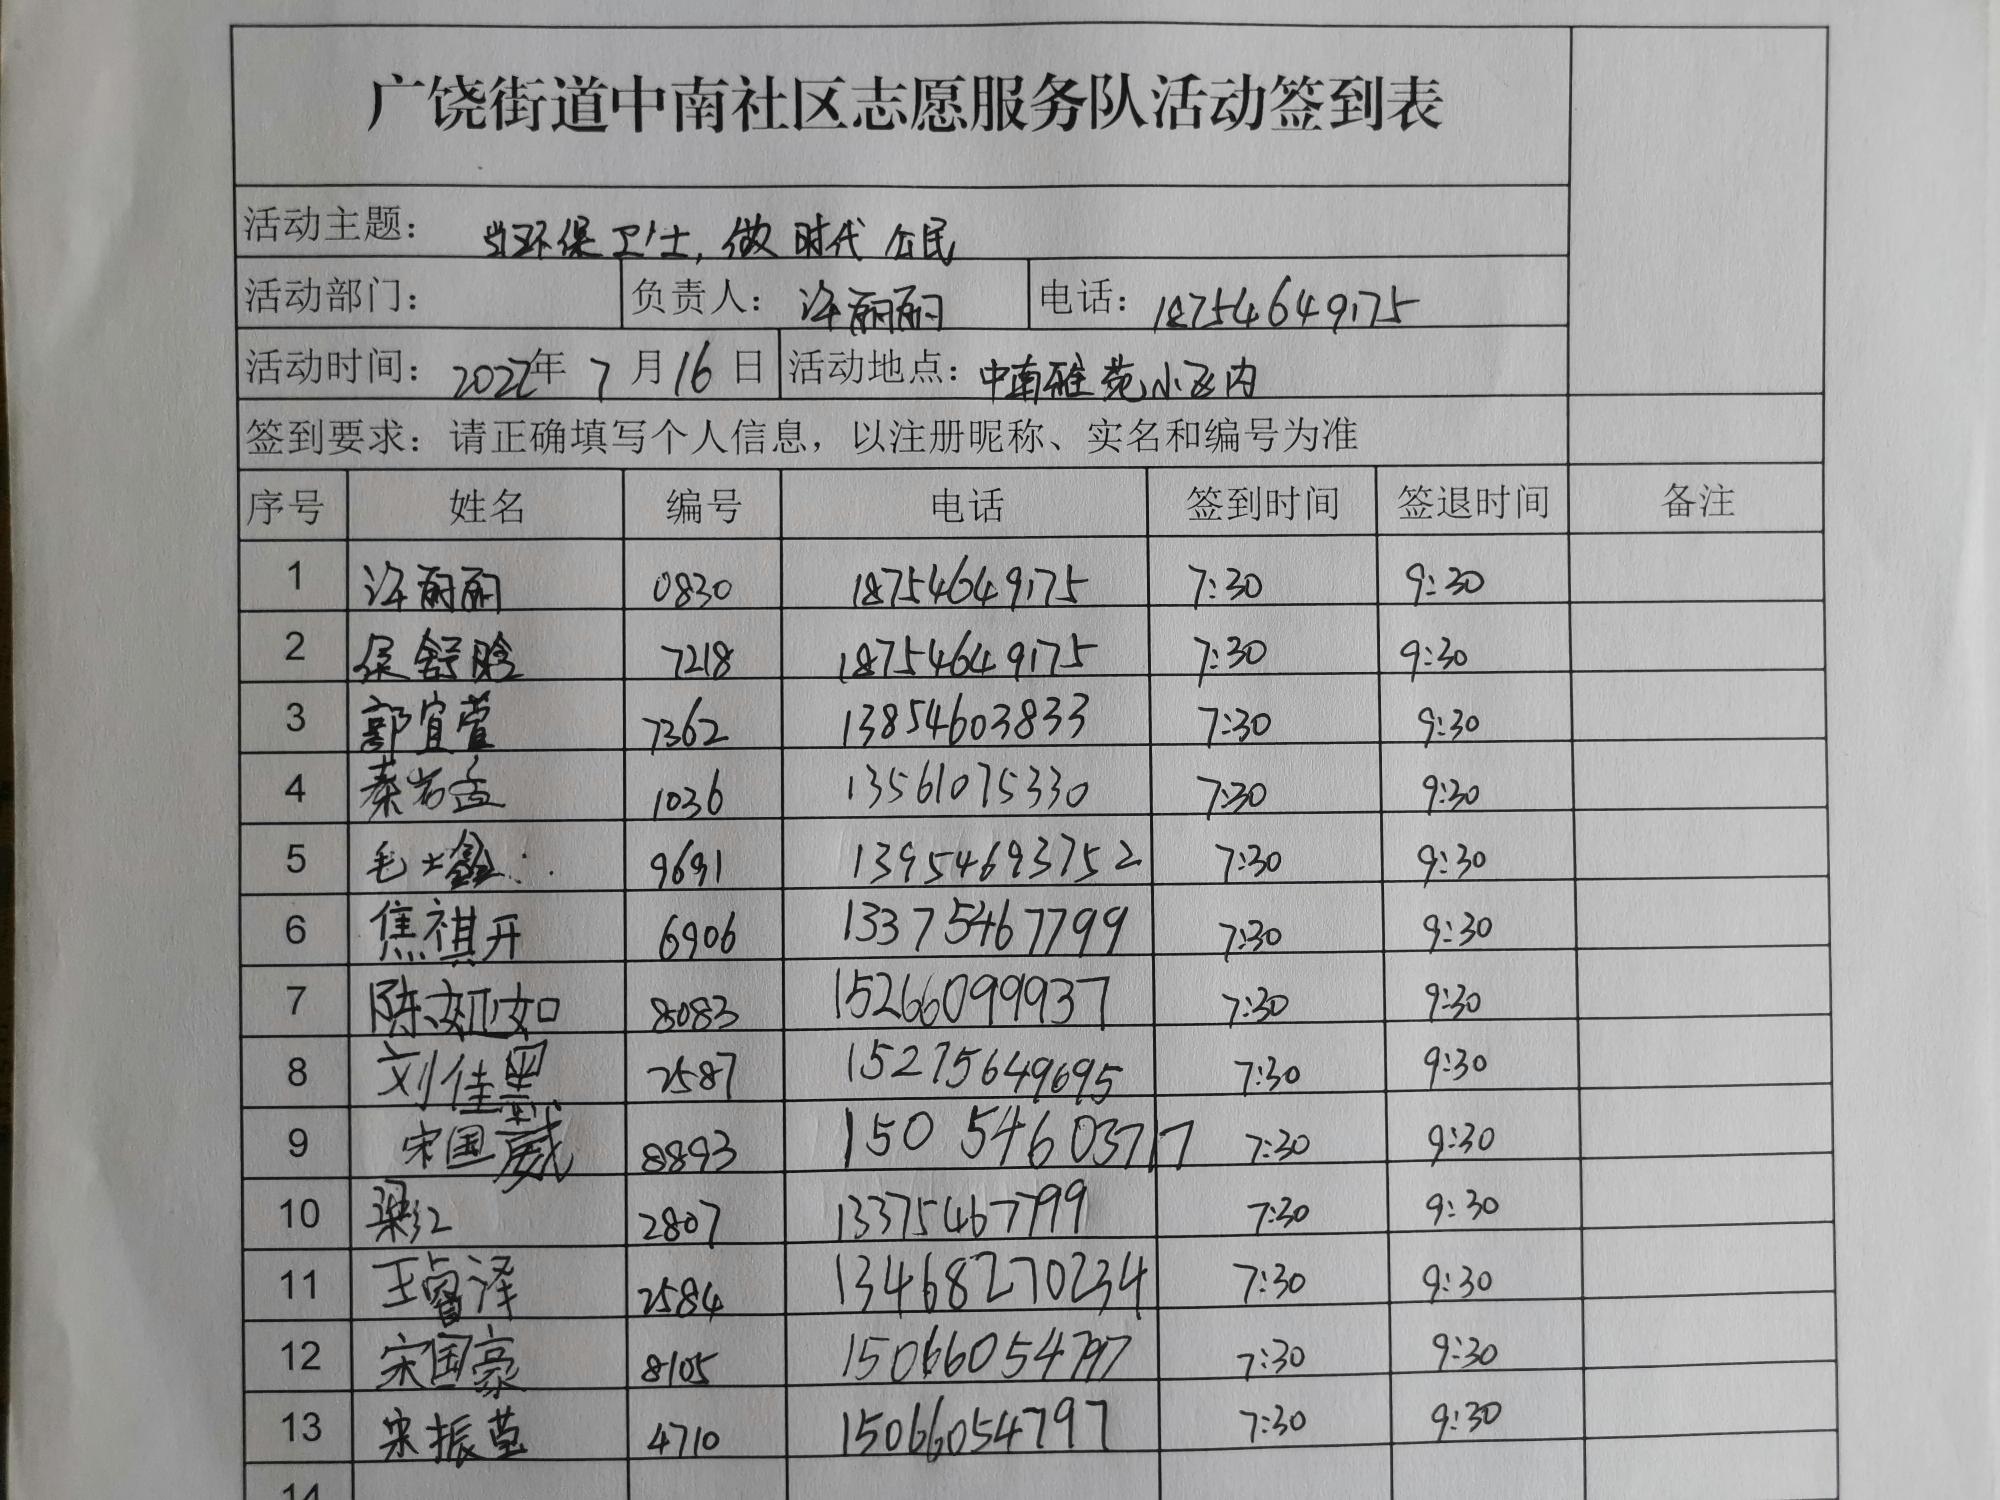 广饶街道中南社区志愿服务队活动签到表
活动主题： 当环保卫士，做时代公民
活动部门： 负责人：许丽丽 电话：18754649175
活动时间：2022年7月16日 活动地点：中南雅苑小区内
签到要求：请正确填写个人信息，以注册昵称、实名和编号为准
序号 姓名 编号 电话 签到时间 签退时间 备注
1 许丽丽 0830 18754649175 7:30 9:30
2 侯舒晗 7218 18754649175 7:30 9:30
3 郭宜萱 7362 13854603833 7:30 9:30
4 秦岩孟 1036 13561075330 7:30 9:30
5 毛 9691 13954693752 7:30 9:30
6 焦祺开 6906 13375467799 7:30 9:30
7 陈如 8083 15266099937 7:30 9:30
8 刘佳墨 2587 15275649695 7:30 9:30
9 宋国威 8893 15054603717 7:30 9:30
10 梁红 2807 13375467799 7:30 9:30
11 王睿泽 2584 13468270234 7:30 9:30
12 宋国豪 8105 15066054797 7:30 9:30
13 宋振莹 4710 15066054797 7:30 9:30
14